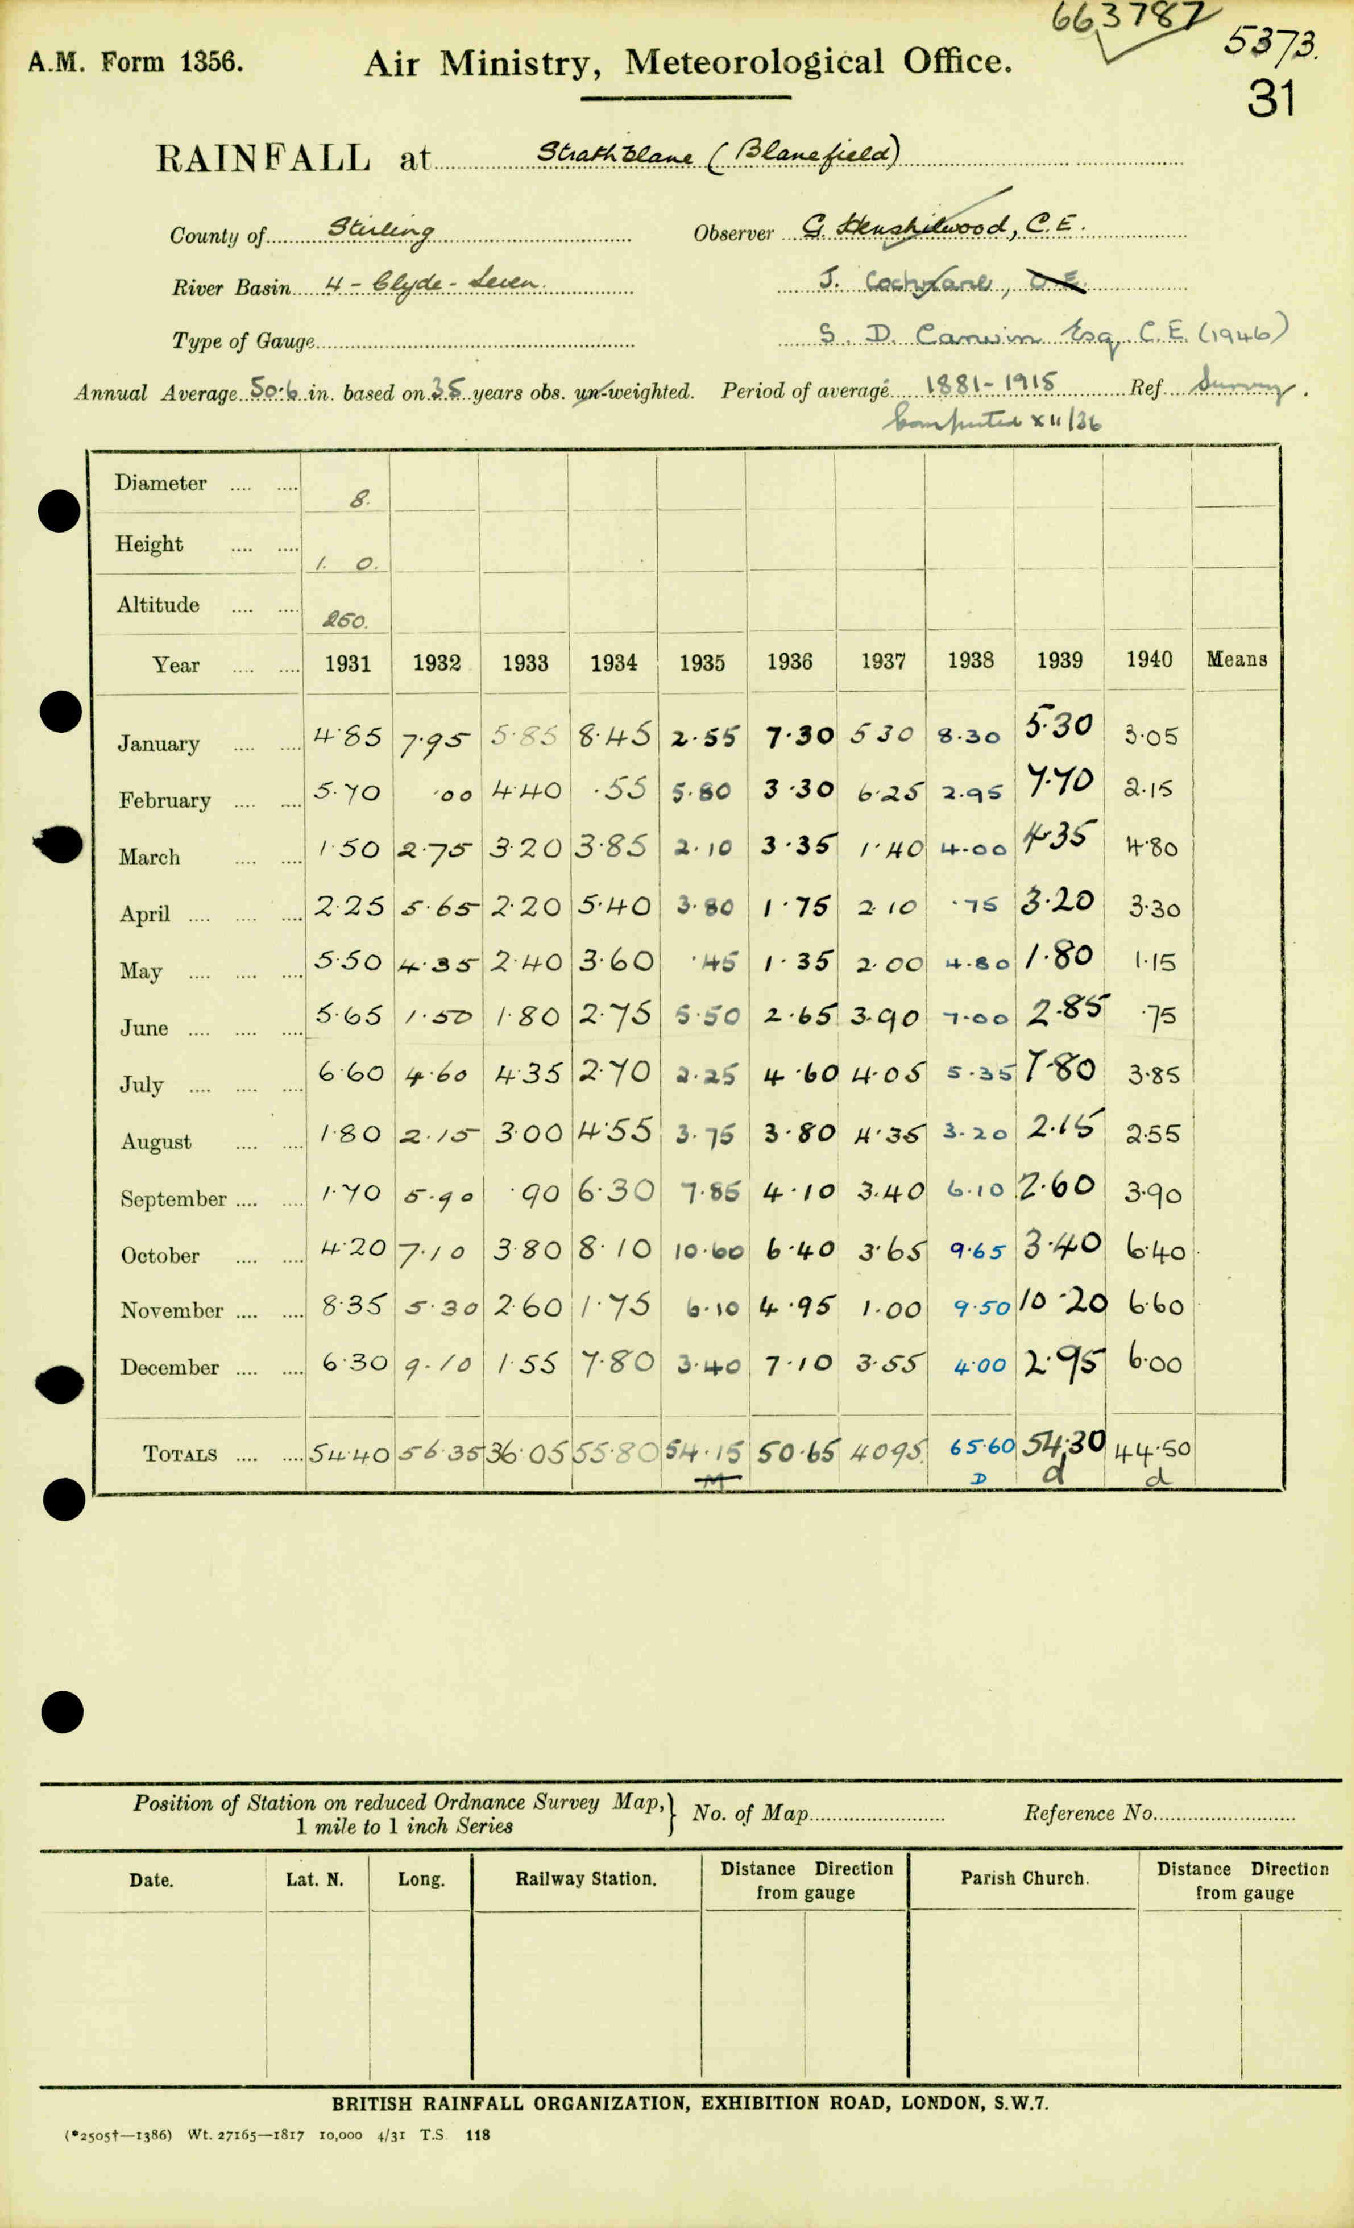 663787
5373.
31
A.M. Form 1356.
Air Ministry, Meteorological Office.
RAINFALL at Strathblane (Blanefield)
County of Stirling Observer G. Henshilwood, C.E.
River Basin 4 - Clyde - Leven J. Cochrane, C.E.
Type of Gauge S. D. Canwin Esq C.E. (1946)
Annual Average 50.6 in. based on 35 years obs. un-weighted. Period of average 1881-1915 Ref. Survey.
Computed XII/36
Diameter 8.
Height 1. 0.
Altitude 250.
Year 1931 1932 1933 1934 1935 1936 1937 1938 1939 1940 Means
January 4.85 7.95 5.85 8.45 2.55 7.30 5 30 8.30 5.30 3.05
February 5.70 .00 4.40 .55 5.80 3.30 6.25 2.95 7.70 2.15
March 1.50 2.75 3.20 3.85 2.10 3.35 1.40 4.00 4.35 4.80
April 2.25 5.65 2.20 5.40 3.80 1.75 2.10 .75 3.20 3.30
May 5.50 4.35 2.40 3.60 .45 1.35 2.00 4.80 1.80 1.15
June 5.65 1.50 1.80 2.75 5.50 2.65 3.90 7.00 2.85 .75
July 6.60 4.60 4.35 2.70 2.25 4.60 4.05 5.35 7.80 3.85
August 1.80 2.15 3.00 4.55 3.75 3.80 4.35 3.20 2.15 2.55
September 1.70 5.90 .90 6.30 7.85 4.10 3.40 6.10 2.60 3.90
October 4.20 7.10 3.80 8.10 10.60 6.40 3.65 9.65 3.40 6.40
November 8.35 5.30 2.60 1.75 6.10 4.95 1.00 9.50 10.20 6.60
December 6.30 9.10 1.55 7.80 3.40 7.10 3.55 4.00 2.95 6.00
TOTALS 54.40 56.35 36.05 55.80 54.15 50.65 40.95 65.60 54.30 44.50
M D d d
Position of Station on reduced Ordnance Survey Map,
1 mile to 1 inch Series
No. of Map Reference No.
Date. Lat. N. Long. Railway Station. Distance Direction from gauge Parish Church. Distance Direction from gauge
BRITISH RAINFALL ORGANIZATION, EXHIBITION ROAD, LONDON, S.W.7.
(*2505†—1386) Wt. 27165—1817 10,000 4/31 T.S. 118